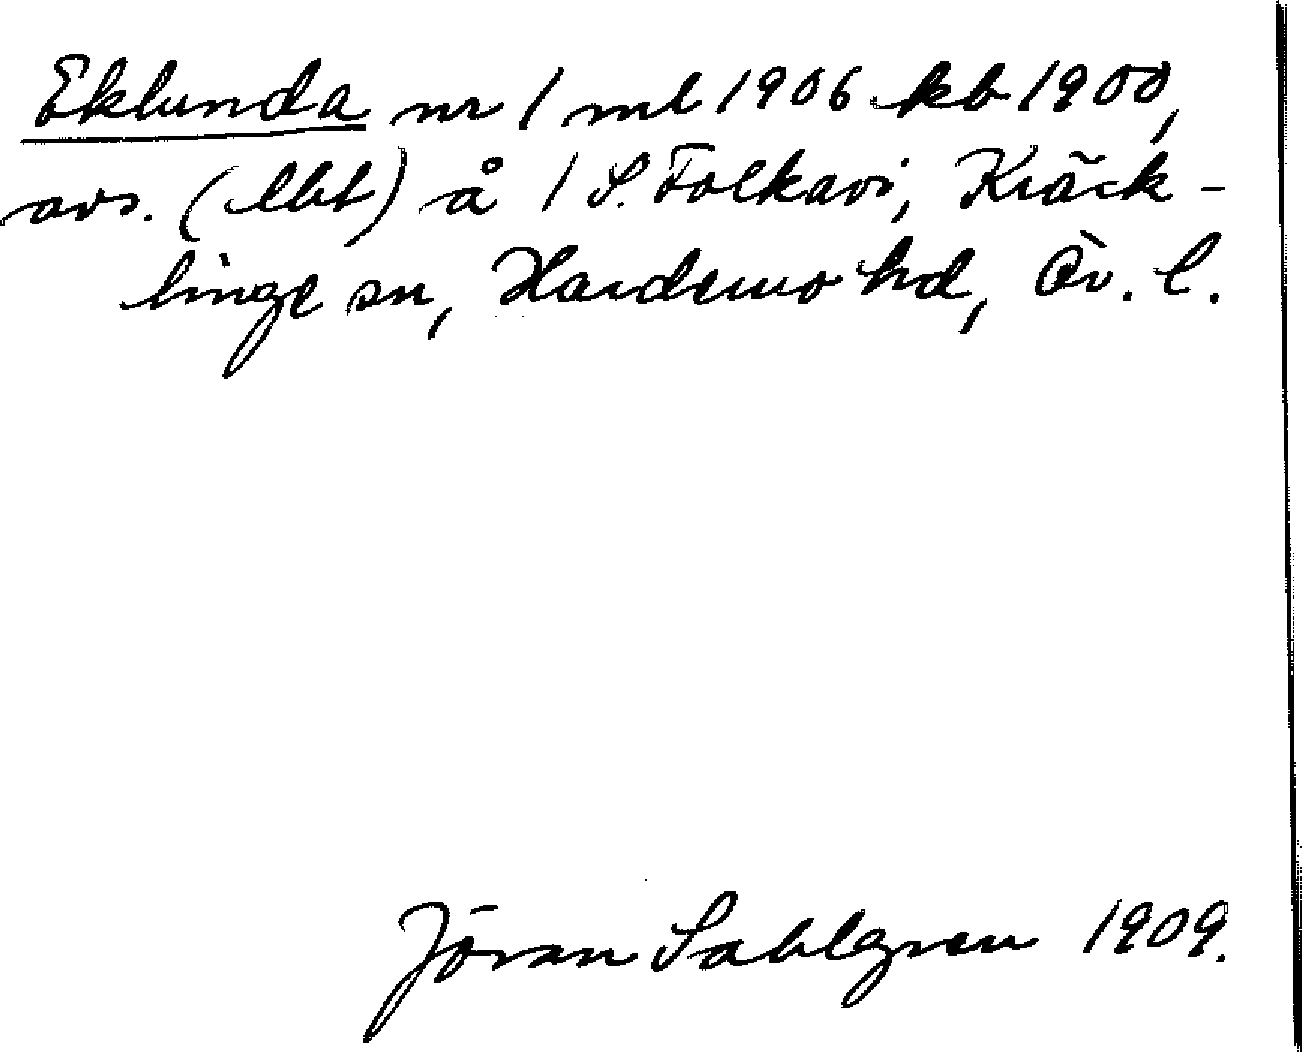 Eklunda nr 1 ml 1906 kb 1900,
avs. (lht) å 1 S. Folkavi, Kräck-
linge sn, Hardemo hd, Ör. l.
Jöran Sahlgren 1909.